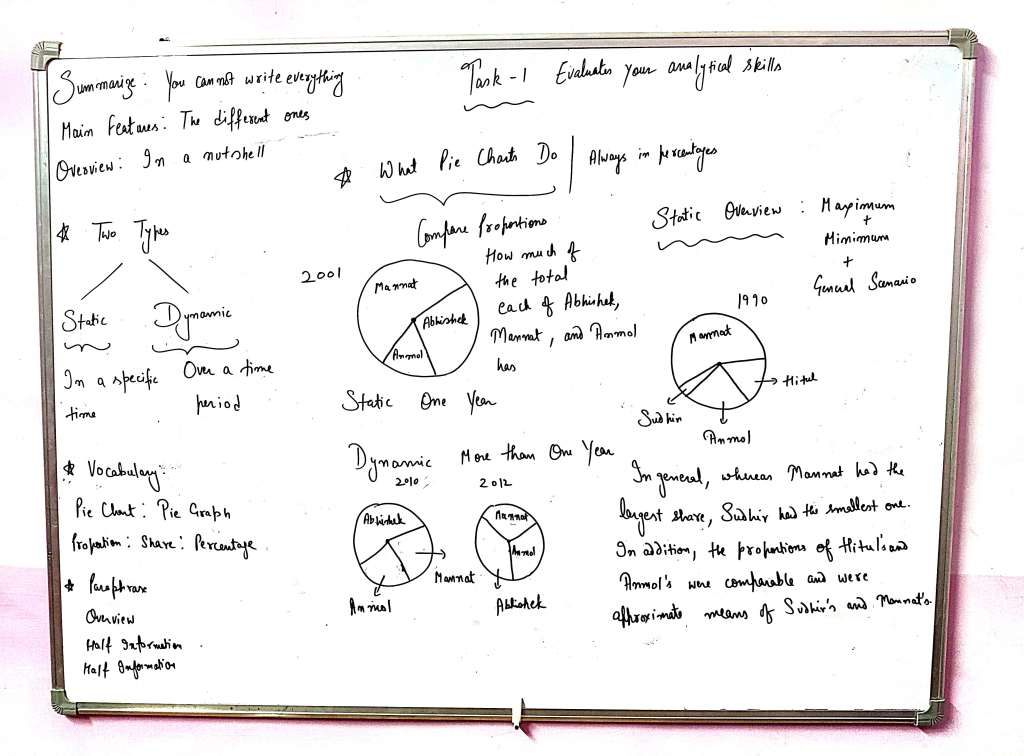 Summarize: You cannot write everything
Main Features: The different ones
Overview: In a nutshell
Task-1 Evaluates your analytical skills
☆ What Pie Charts Do | Always in percentages
Compare Proportions
How much of
the total
each of Abhishek,
Mannat, and Anmol
has
2001
Mannat
Abhishek
Anmol
Static One Year
☆ Two Types
Static
Dynamic
In a specific
time
Over a time
period
Static Overview : Maximum
+
Minimum
+
General Scenario
1990
Mannat
Hitul
Sudhir
Anmol
Dynamic More than One Year
2010
2012
Abhishek
Mannat
Anmol
Mannat
Anmol
Abhishek
☆ Vocabulary:
Pie Chart: Pie Graph
Proportion: Share: Percentage
☆ Paraphrase
Overview
Half Information
Half Information
In general, whereas Mannat had the
largest share, Sudhir had the smallest one.
In addition, the proportions of Hitul's and
Anmol's were comparable and were
approximate means of Sudhir's and Mannat's.